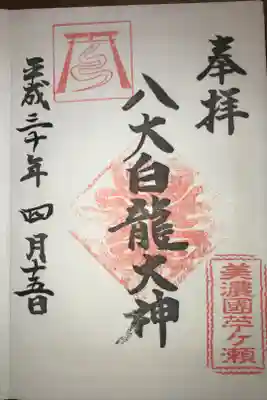 奉拝
美濃國苧ヶ瀬
八大白龍大神
平成三十年四月十五日